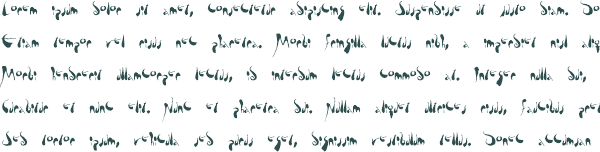 Lorem ipsum dolor sit amet, consectetur adipiscing elit. Suspendisse et justo diam. Do
Etiam tempor vel risus nec pharetra. Morbi fringilla luctus nibh, a imperdiet nisl aliq
Morbi hendrerit ullamcorper lectus, id interdum lectus commodo at. Integer nulla dui,
Curabitur et nunc elit. Nunc et pharetra dui. Nullam aliquet ultrices risus, faucibus pel
Sed tortor ipsum, vehicula sed purus eget, dignissim vestibulum tellus. Donec accumsan